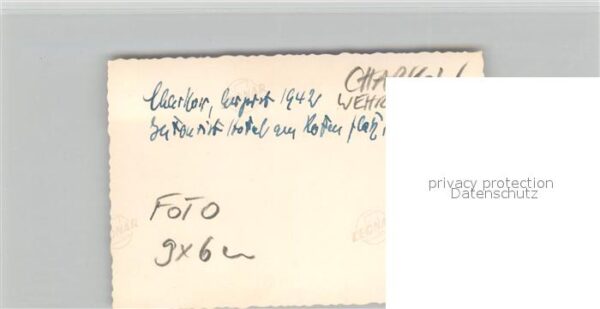 CHARKOW
Charkow, August 1942 WEHR
Intourist Hotel am Roten Platz,
FOTO
9x6 cm
LEONAR
LEONAR
privacy protection
Datenschutz